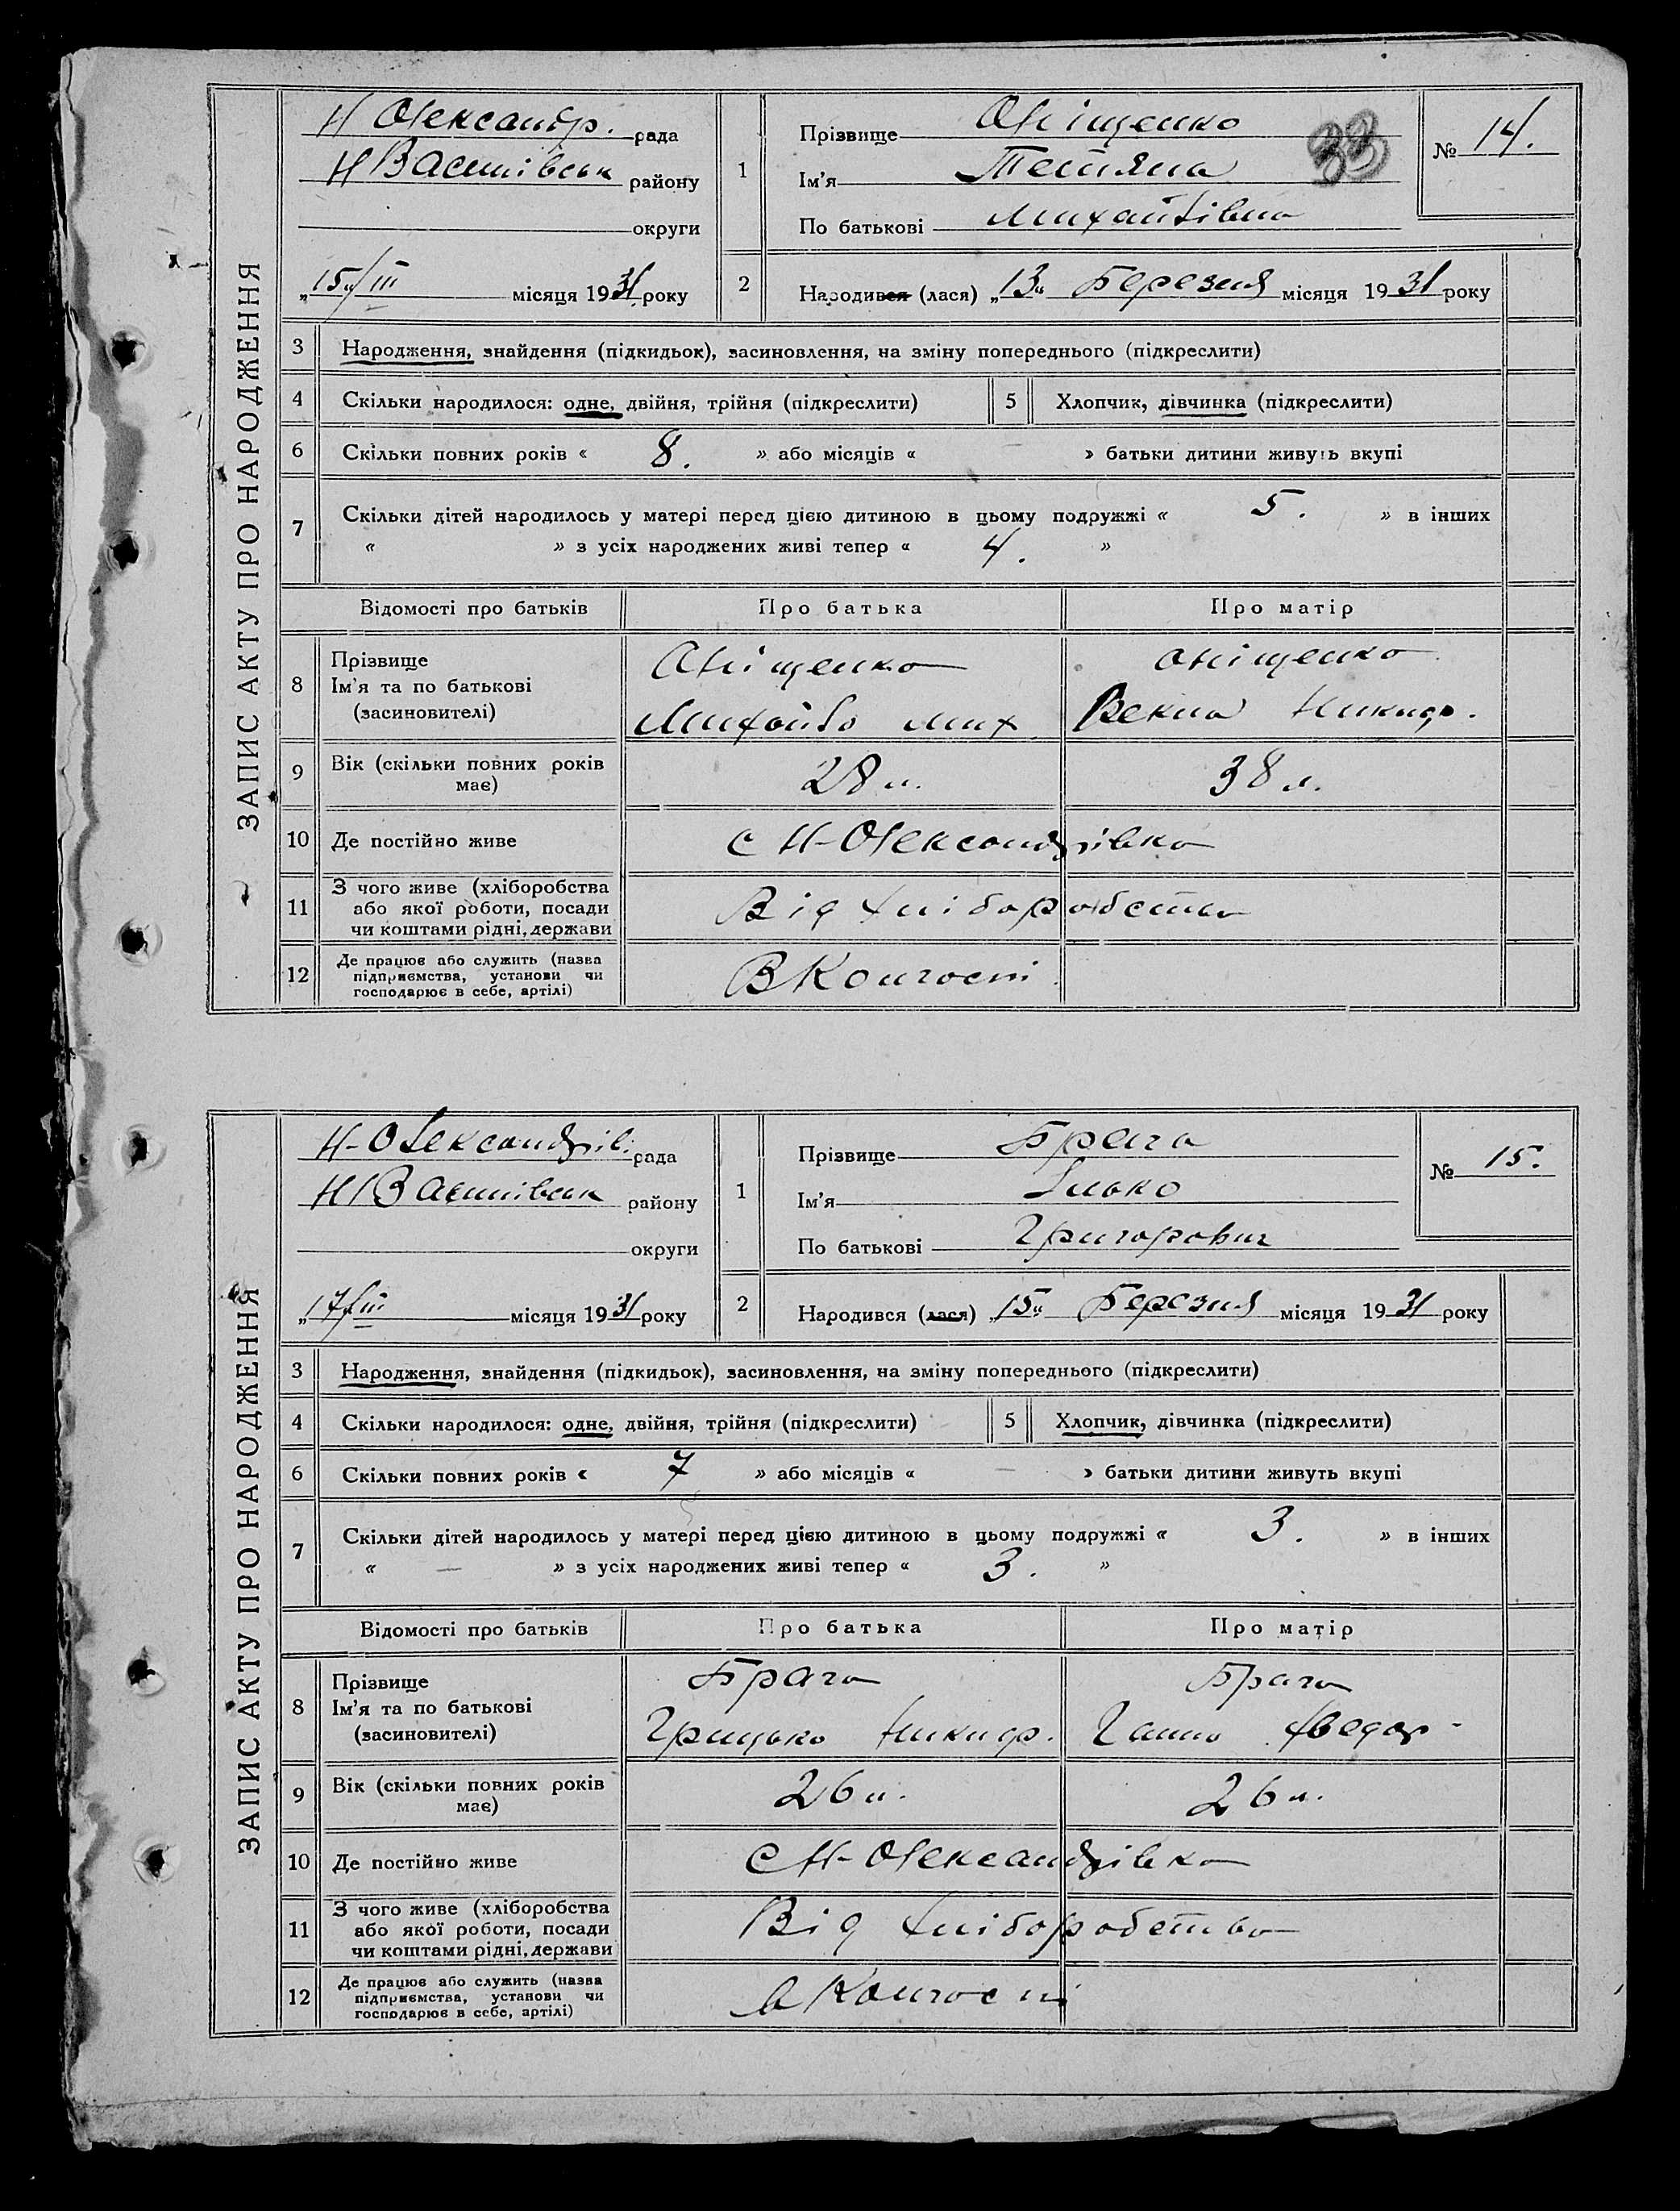 ЗАПИС АКТУ ПРО НАРОДЖЕННЯ
Н Олександр. рада
Н Василівськ району
округи
„15“/III місяця 1931 року
1
Прізвище Оніщенко
Ім'я Тетяна
По батькові Михайлівна
33
№ 14.
2
Народився (лася) „13“ Березня місяця 1931 року
3 Народження, знайдення (підкидьок), засиновлення, на зміну попереднього (підкреслити)
4 Скільки народилося: одне, двійня, трійня (підкреслити) 5 Хлопчик, дівчинка (підкреслити)
6 Скільки повних років « 8. » або місяців « — » батьки дитини живуть вкупі
7 Скільки дітей народилось у матері перед цією дитиною в цьому подружжі « 5. » в інших
« » з усіх народжених живі тепер « 4. »
Відомості про батьків Про батька Про матір
8 Прізвище
Ім'я та по батькові
(засиновителі)
Оніщенко
Михайло Мих
Оніщенко
Векла Никидр.
9 Вік (скільки повних років
має)
28 л. 38 л.
10 Де постійно живе с Н-Олександрівка
11 З чого живе (хліборобства
або якої роботи, посади
чи коштами рідні, держави
Від хліборобства
12 Де працює або служить (назва
підприємства, установи чи
господарює в себе, артілі)
В Колгоспі
ЗАПИС АКТУ ПРО НАРОДЖЕННЯ
Н-Олександрів. рада
Н Василівськ району
округи
„17“/III місяця 1931 року
1
Прізвище Брага
Ім'я Ілько
По батькові Григорович
№ 15.
2
Народився (лася) „15“ Березня місяця 1931 року
3 Народження, знайдення (підкидьок), засиновлення, на зміну попереднього (підкреслити)
4 Скільки народилося: одне, двійня, трійня (підкреслити) 5 Хлопчик, дівчинка (підкреслити)
6 Скільки повних років « 7 » або місяців « — » батьки дитини живуть вкупі
7 Скільки дітей народилось у матері перед цією дитиною в цьому подружжі « 3. » в інших
« — » з усіх народжених живі тепер « 3. »
Відомості про батьків Про батька Про матір
8 Прізвище
Ім'я та по батькові
(засиновителі)
Брага
Грицько Никидр.
Брага
Ганна Хведор-
9 Вік (скільки повних років
має)
26 л. 26 л.
10 Де постійно живе с Н-Олександрівка
11 З чого живе (хліборобства
або якої роботи, посади
чи коштами рідні, держави
Від хліборобства
12 Де працює або служить (назва
підприємства, установи чи
господарює в себе, артілі)
в Колгоспі